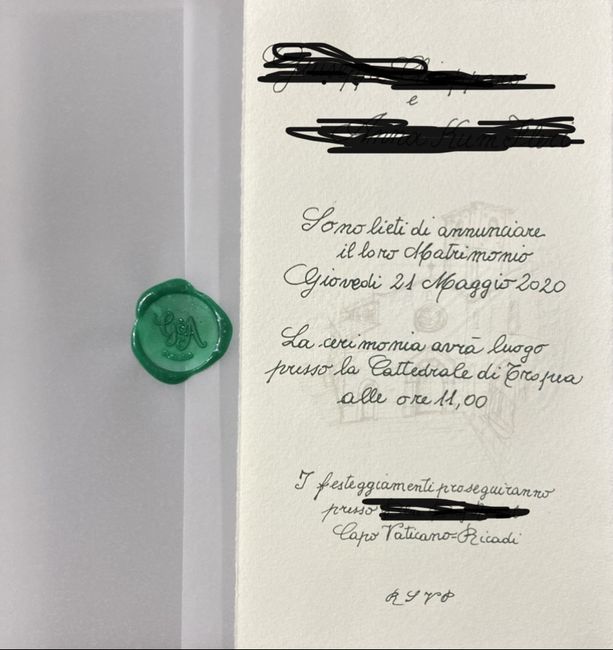 e
Sono lieti di annunciare
il loro Matrimonio
Giovedì 21 Maggio 2020
La cerimonia avrà luogo
presso la Cattedrale di Tropea
alle ore 11,00
I festeggiamenti proseguiranno
presso
Capo Vaticano-Ricadi
RSVP
G&A